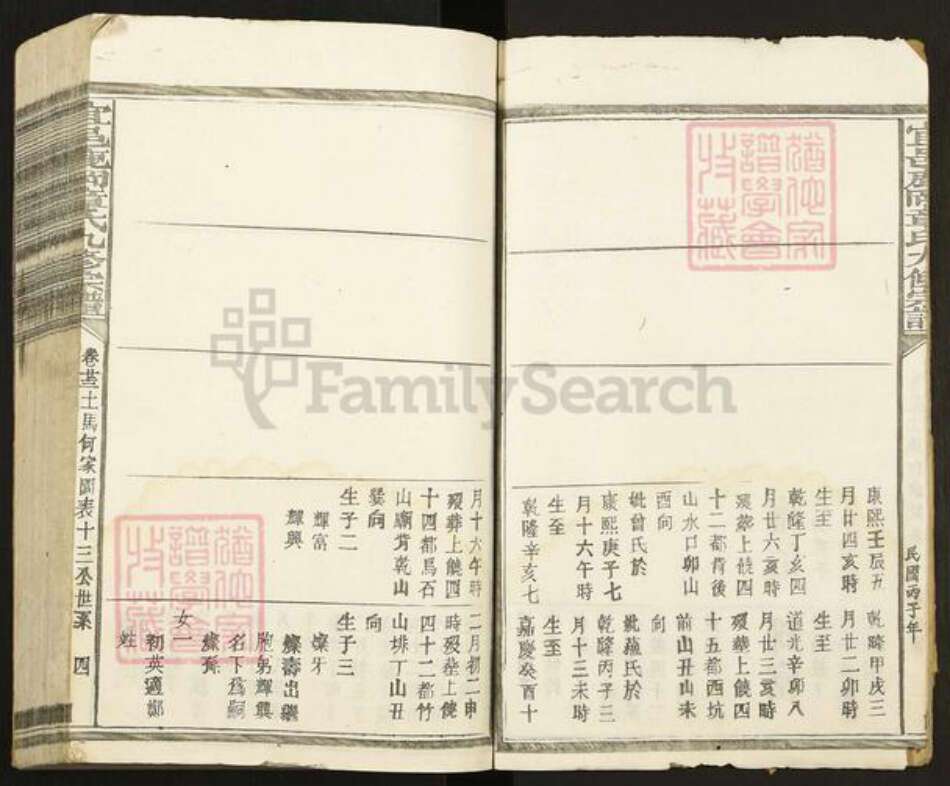 民國丙子年
康熙壬辰五
月廿四亥時
生至
乾隆丁亥四
月廿六亥時
歿葬上饒四
十二都背後
山水口卯山
酉向
妣曾氏於
康熙庚子七
月十六午時
生至
乾隆辛亥七
乾隆甲戌三
月廿二卯時
生至
道光辛卯八
月廿三亥時
歿葬上饒四
十五都西坑
前山丑山未
向
妣蘓氏於
乾隆丙子三
月十三未時
生至
嘉慶癸酉十
月十六午時
歿葬上饒四
十四都馬石
山廟背乾山
巽向
生子二
輝富
輝興
二月初二申
時歿塟上饒
四十二都竹
山排丁山丑
向
生子三
燦牙
燦濤出繼
胞弟輝興
名下為嗣
燦孫
女一
初英適鄒
姓
卷廿三土馬何家圖表十三公世系 四
譜學會
收藏
FamilySearch